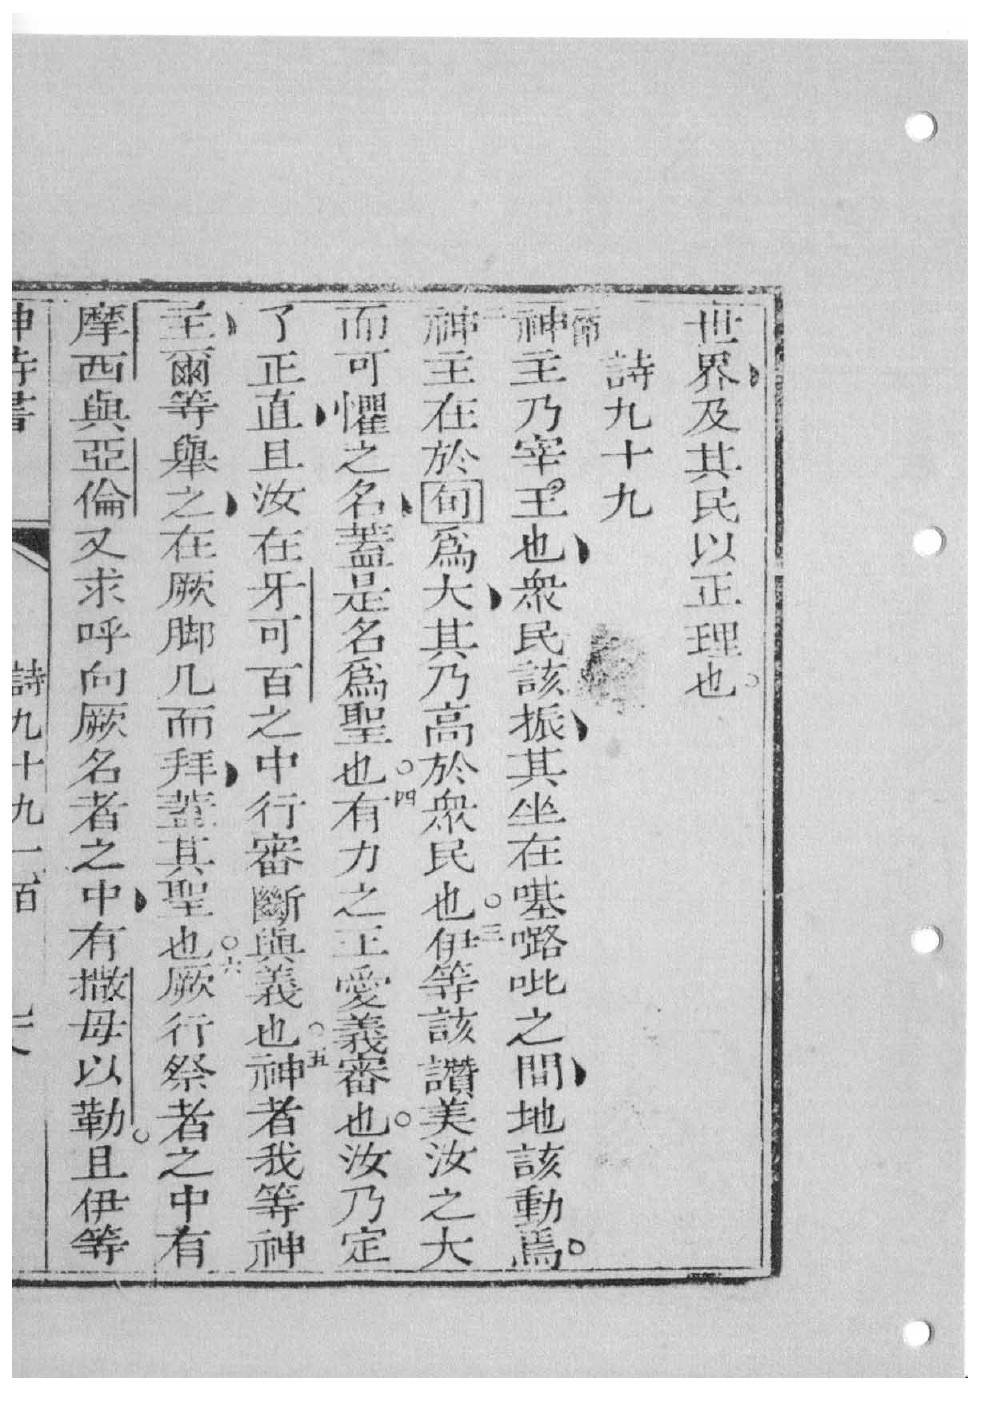 世界及其民以正理也。
詩九十九
一節
神主乃宰王也衆民該振其坐在𠹌嚕呲之間地該動焉。
二神主在於[旬]爲大其乃高於衆民也。三伊等該讚美汝之大
而可懼之名蓋是名爲聖也。四有力之王愛義審也。汝乃定
了正直且汝在牙可百之中行審斷與義也。五神者我等神
主爾等舉之在厥脚几而拜蓋其聖也。六厥行祭者之中有
摩西與亞倫又求呼向厥名者之中有撒母以勒。且伊等
神詩書 詩九十九 一百